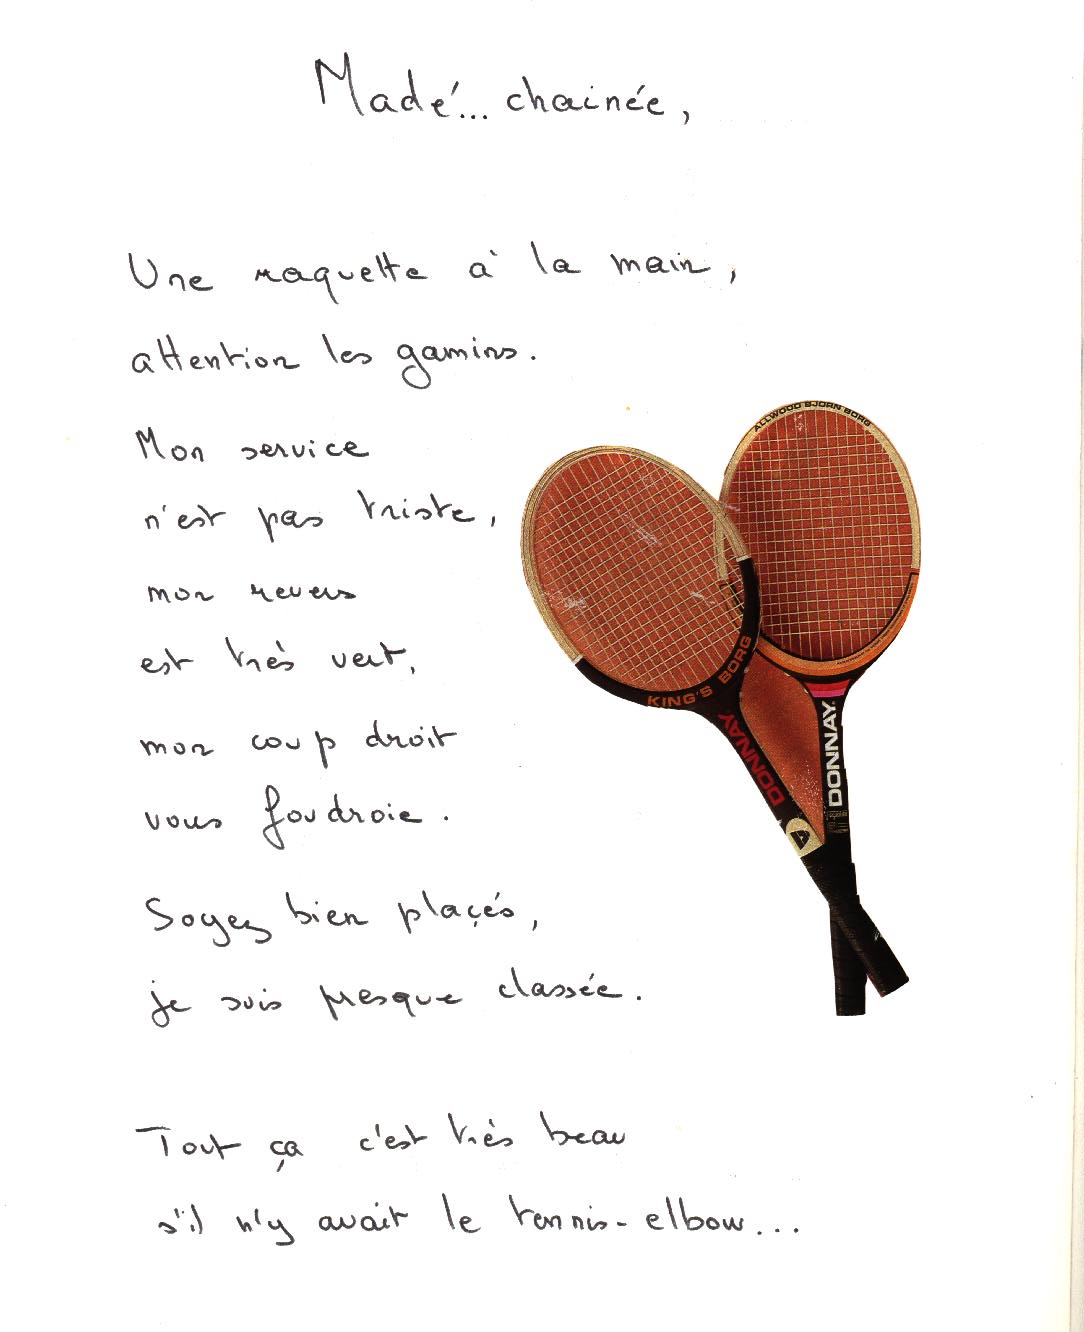 Madé... chainée,
Une raquette à la main,
attention les gamins.
Mon service
n'est pas triste,
mon revers
est très vert,
mon coup droit
vous foudroie.
Soyez bien plaçés,
je suis presque classée.
Tout ça c'est très beau
s'il n'y avait le tennis-elbow...
ALLWOOD BJORN BORG
KING'S BORG
DONNAY
DONNAY